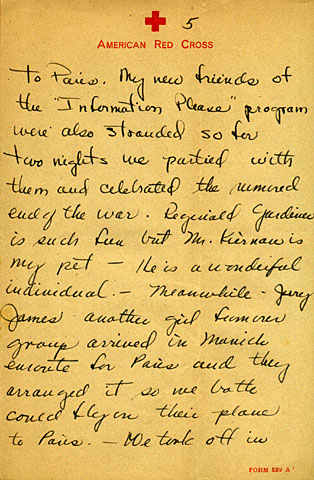 5
AMERICAN RED CROSS
to Paris. My new friends of
the "Information Please" program
were also stranded so for
two nights we partied with
them and celebrated the rumored
end of the war. Reginald Gardiner
is such fun but Mr. Kiernan is
my pet – He is a wonderful
individual. – Meanwhile – Jerry
James another girl
group arrived in Munich
enroute for Paris and they
arranged it so we both
could fly on their plane
to Paris. – We took off in
FORM 539 A